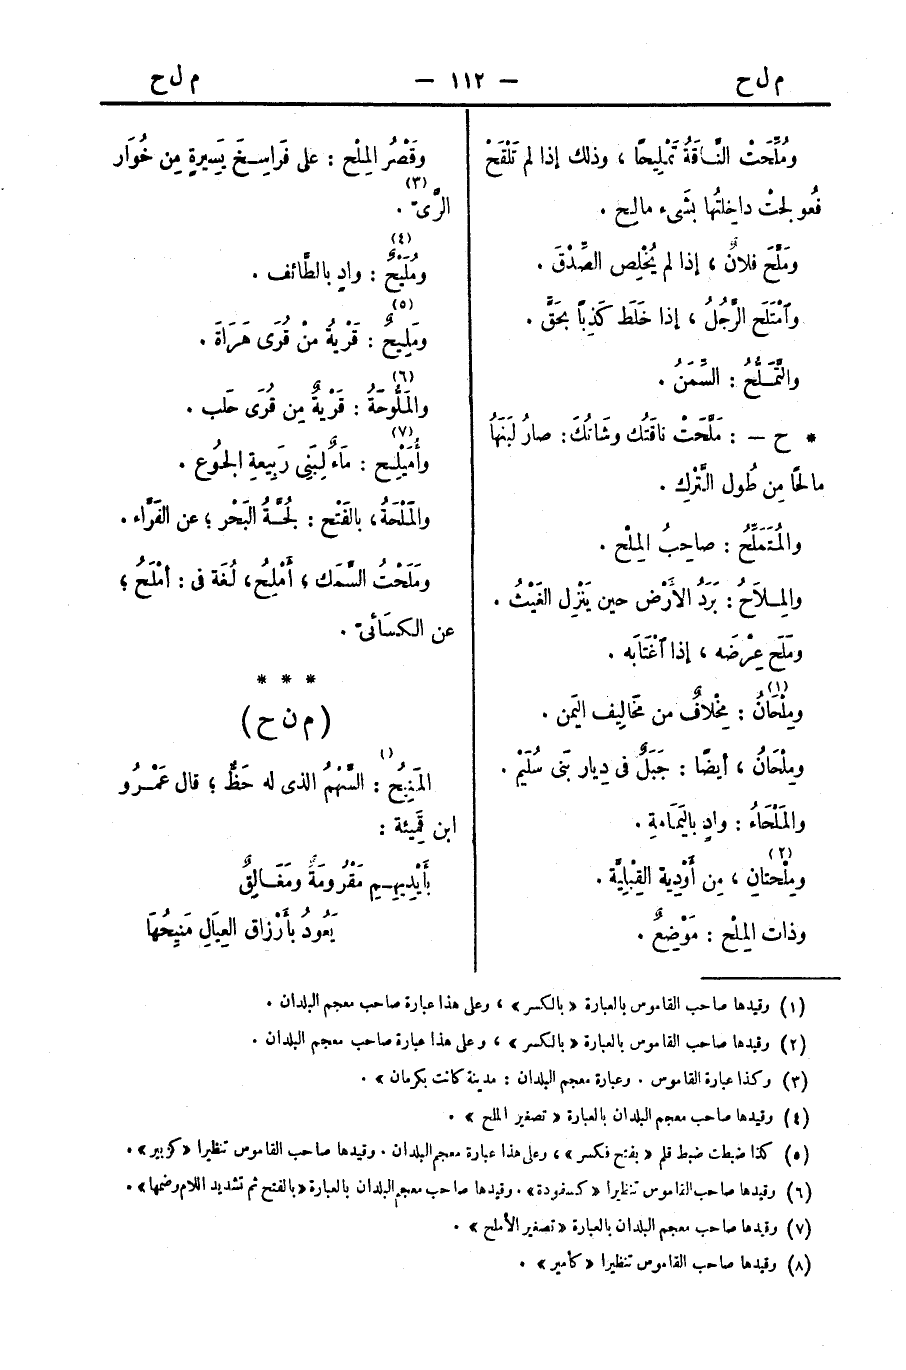 م ل ح — ١١٢ — م ل ح
ومُلِّحَتْ النَّاقَةُ تَمْلِيحًا ، وذلك إذا لم تَلْقَحْ
فعُولِجَتْ داخِلتُها بشَىء مالِح .
ومَلَّحَ فلانٌ ، إذا لم يُخْلِص الصِّدْقَ .
وٱمْتَلَح الرَّجُلُ ، إذا خَلَط كَذِبًا بحَقٍّ .
والتَّمَلُّحُ : السِّمَنُ .
* ح — : مَلَّحَتْ ناقَتُك وشَاتُكَ : صارُ لَبَنُها
مالحًا مِن طُول التَّرْكِ .
والمُتَمَلِّحُ : صاحِبُ المِلْح .
والمِلاَحُ : بَرَدُ الأَرْض حين يَنْزِل الغَيْثُ .
ومَلَح عِرْضَه ، إذا ٱغْتَابَه .
ومِلْحَانُ (١) : مِخْلافٌ من مَخَالِيف اليَمن .
ومِلْحَانُ ، أيضًا : جَبَلٌ فى دِيار بَنى سُلَيْم .
والمَلْحَاءُ : وادٍ باليَمَامَةِ .
ومِلْحَتانِ (٢) ، مِن أَوْدِية القِبْلِيَّة .
وذات المِلْح : مَوْضِعٌ .
وقَصْرُ المِلْح : على فَرَاسِخَ يَسِيرةٍ مِن خُوَار
الرَّىّ (٣) .
ومُلَيْحٌ (٤) : وادٍ بالطَّائف .
ومَلِيحٌ (٥) : قَرْيةٌ مِنْ قُرَى هَرَاةَ .
والمَلُّوحَةُ (٦) : قَرْيةٌ مِن قُرَى حَلَب .
وأُمَيْلِح (٧) : مَاءٌ لِبَنِى رَبِيعةِ الجُوع .
والمَلْحَةُ ، بالفَتْح : لُجَّةُ البَحْر ؛ عن الفَرَّاء .
ومَلَحْتُ السَّمَك ؛ أَمْلِحُ ، لُغَة فى : أَمْلَحُ ؛
عن الكسَائىّ .
* * *
( م ن ح )
المَنِيحُ () : السَّهْمُ الذى له حَظٌّ ؛ قال عَمْرُو
ابن قَمِيئة :
بأَيْدِيهِم مَقْرُومَةٌ ومَغَالِقٌ
يَعُودُ بأَرْزاق العِيَالِ مَنِيحُهَا
(١) وقيدها صاحب القاموس بالعبارة « بالكسر » ، وعلى هذا عبارة صاحب معجم البلدان .
(٢) وقيدها صاحب القاموس بالعبارة « بالكسر » ، وعلى هذا عبارة صاحب معجم البلدان .
(٣) وكذا عبارة القاموس . وعبارة معجم البلدان : مدينة كانت بكرمان » .
(٤) وقيدها صاحب معجم البلدان بالعبارة « تصغير الملح » .
(٥) كذا ضبطت ضبط قلم « بفتح فكسر » ، وعلى هذا عبارة معجم البلدان . وقيدها صاحب القاموس تنظيرا « كزبير » .
(٦) وقيدها صاحب القاموس تنظيرا « كسفودة » . وقيدها صاحب معجم البلدان بالعبارة « بالفتح ثم تشديد اللام وضمها » .
(٧) وقيدها صاحب معجم البلدان بالعبارة « تصغير الأملح » .
(٨) وقيدها صاحب القاموس تنظيرا « كأمير » .